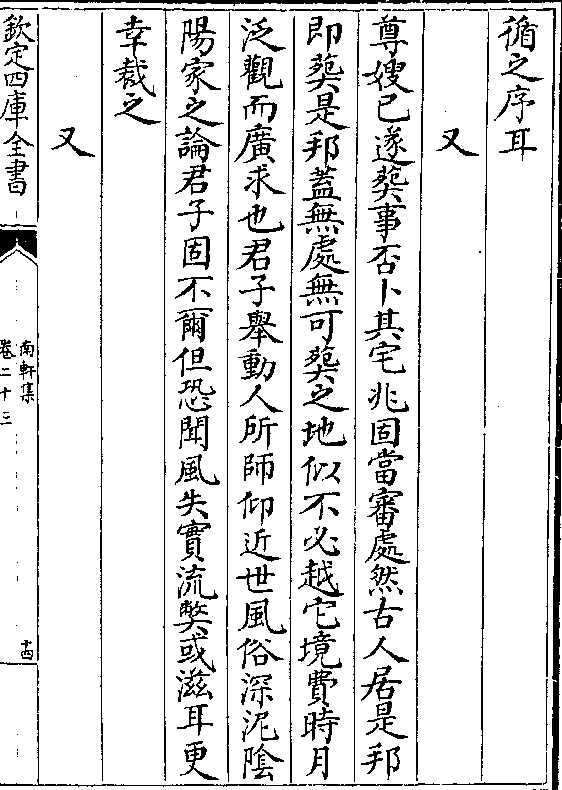 循之序耳
又
尊嫂已遂葬事否卜其宅兆固當審處然古人居是邦
即葬是邦蓋無處無可葬之地似不必越它境費時月
泛觀而廣求也君子舉動人所師仰近世風俗深泥陰
陽家之論君子固不爾但恐聞風失實流弊或滋耳更
幸裁之
又
欽定四庫全書
南軒集
卷二十三
十四